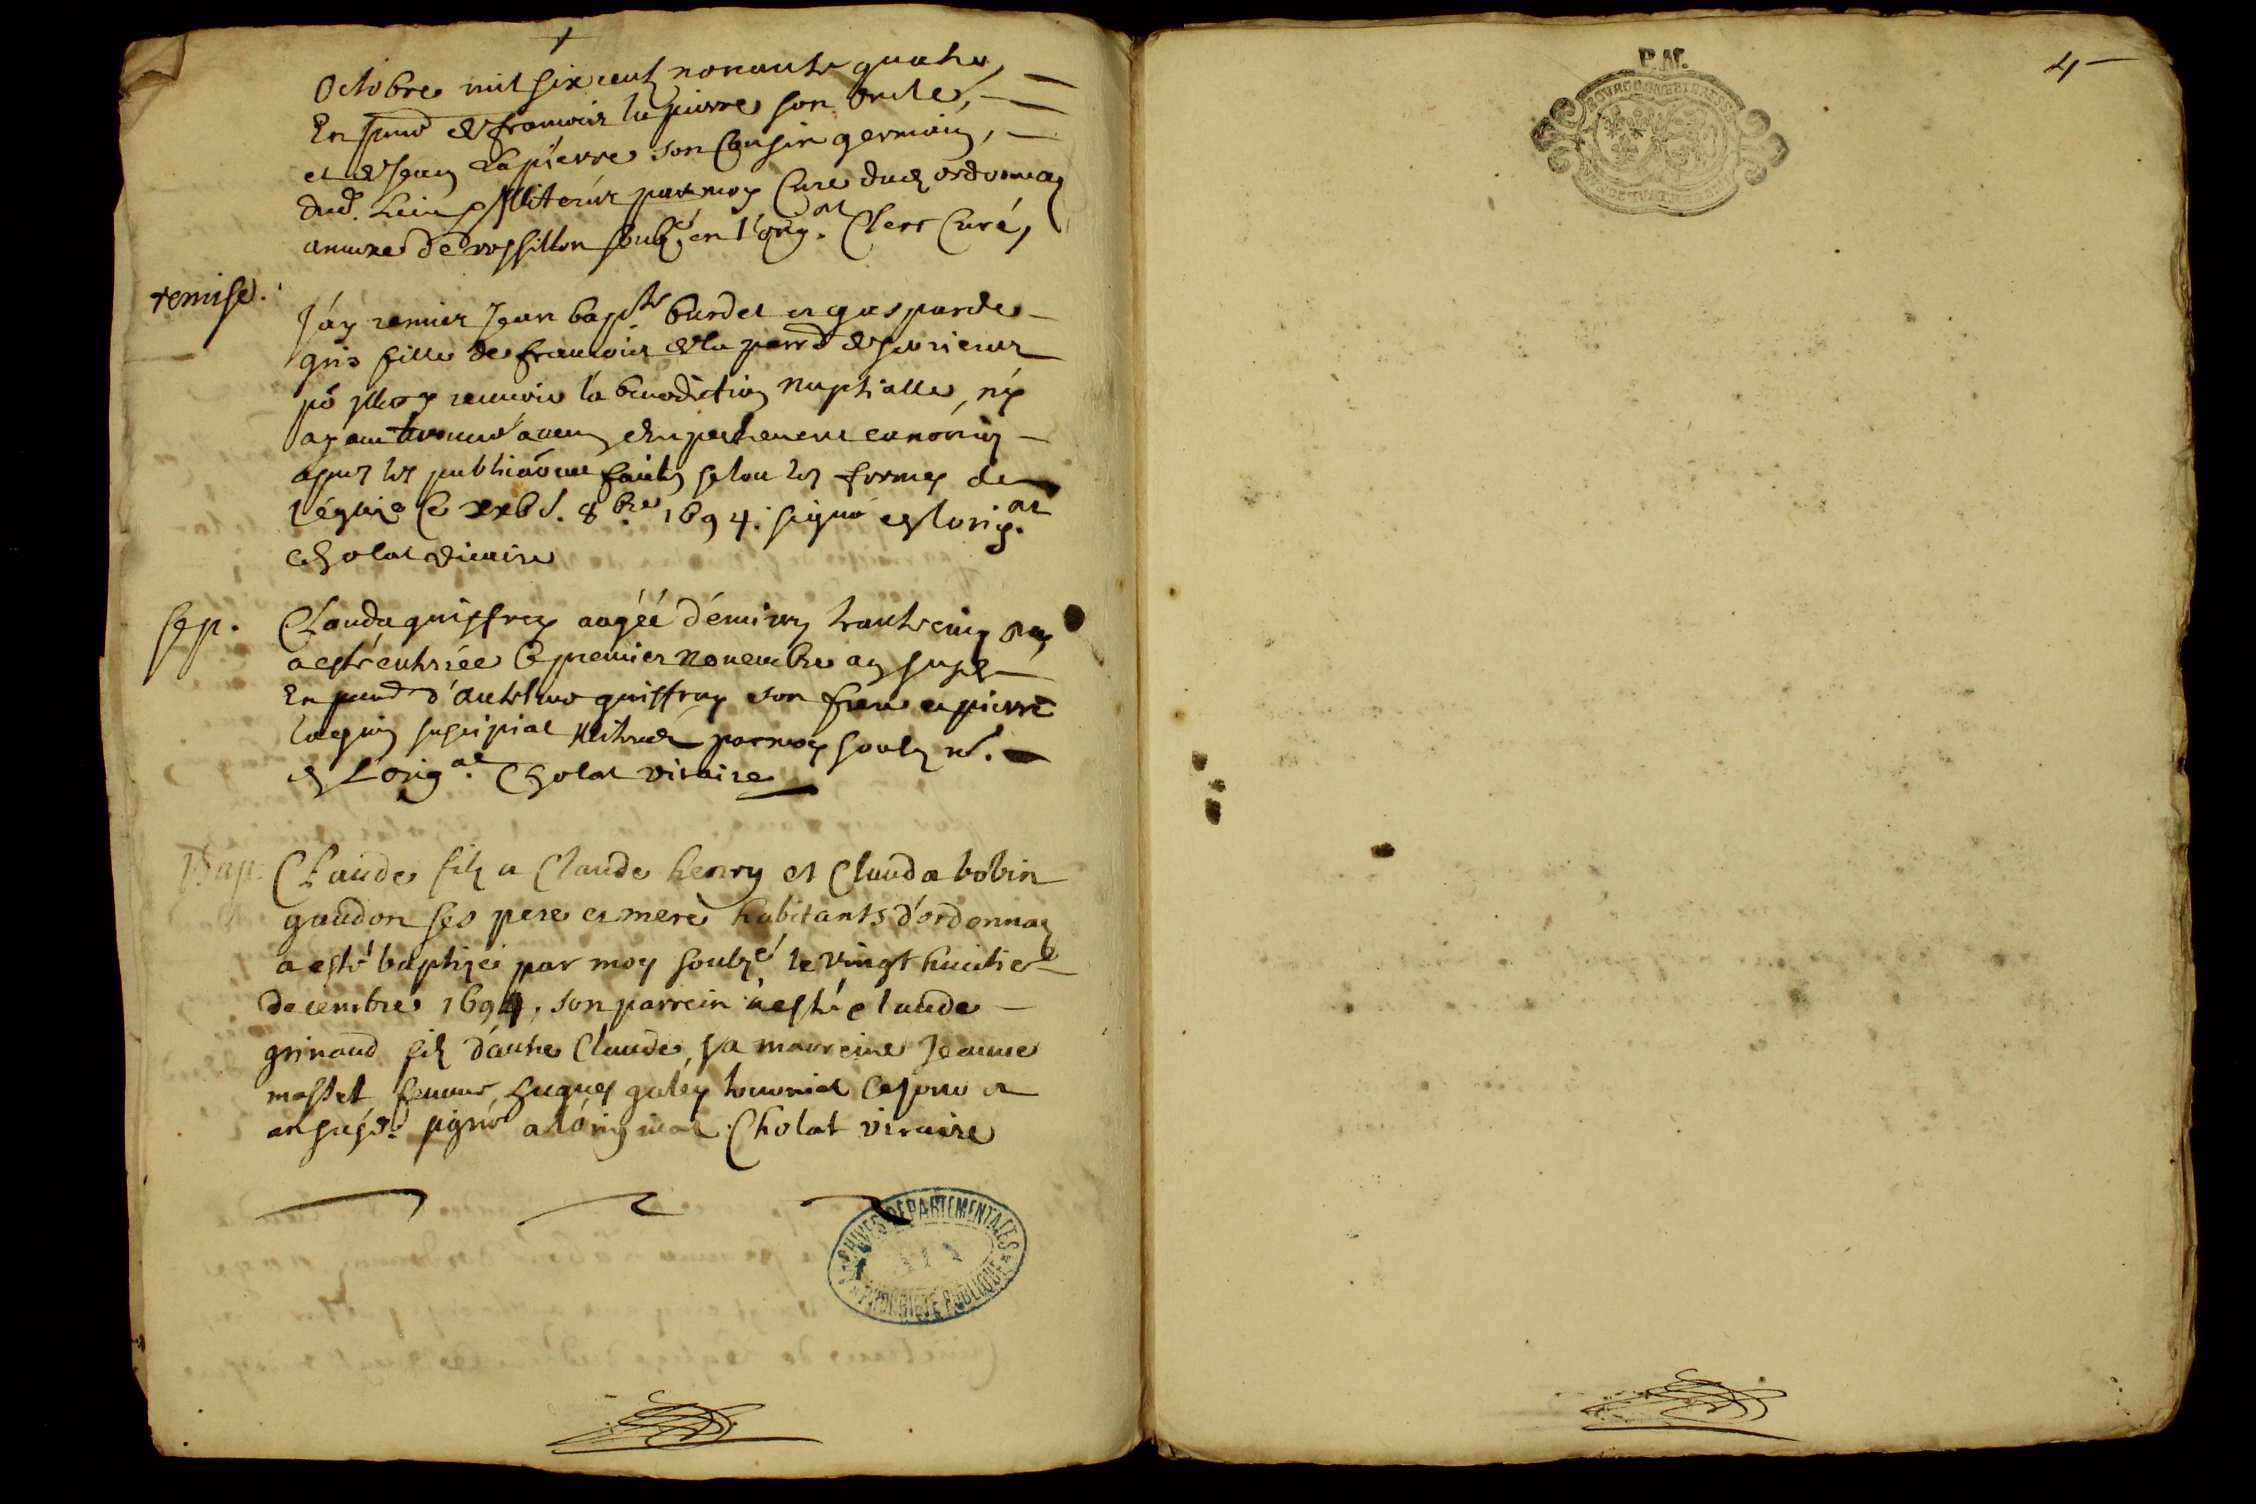 Octobre mil six cent nonante quatre,
En pnce de francois la pierre son oncle,
et de Jean Lapierre son Cousin germain,
dud. lieu par moy Curé dud ordonnaz
annexe de rossillon soubzé en l'orig.al Clerc Curé,
remise.
J'ay remis Jean bapte burdet et gasparde
gris fille de francois de la parr
po recevoir la benediction nuptialle, n'y
ayant trouvé aucun empechement canoniq
apres les publicaons faites selon les formes de
l'églize le xxbi. 8bre 1694. signé en l'orig.al
Cholat vicaire
Sep.
Clauda guiffrey aagéé d'environ trante cinq ans
a esté entrrée le premier novembre an susd
En pnce d'Anthelme guiffrey son frere et pierre
par moy soubz né.
en L'orig.al Cholat vicaire
Bap.
Claude filz a Claude henry et Clauda bobin
gaudon ses pere et mere habitants d'ordonnaz
a esté baptizé par moy soubzé le vingt huitie
decembre 1694, son parrein a esté claude
grinand filz d'autre Claude, sa marreine Jeanne
masset femme hugues galey le jour et
an susd. signé a l'original Cholat vicaire
ARCHIVES DÉPARTEMENTALES
AIN
PROPRIÉTÉ PUBLIQUE
4
BOURGOGNE ET BRESSE